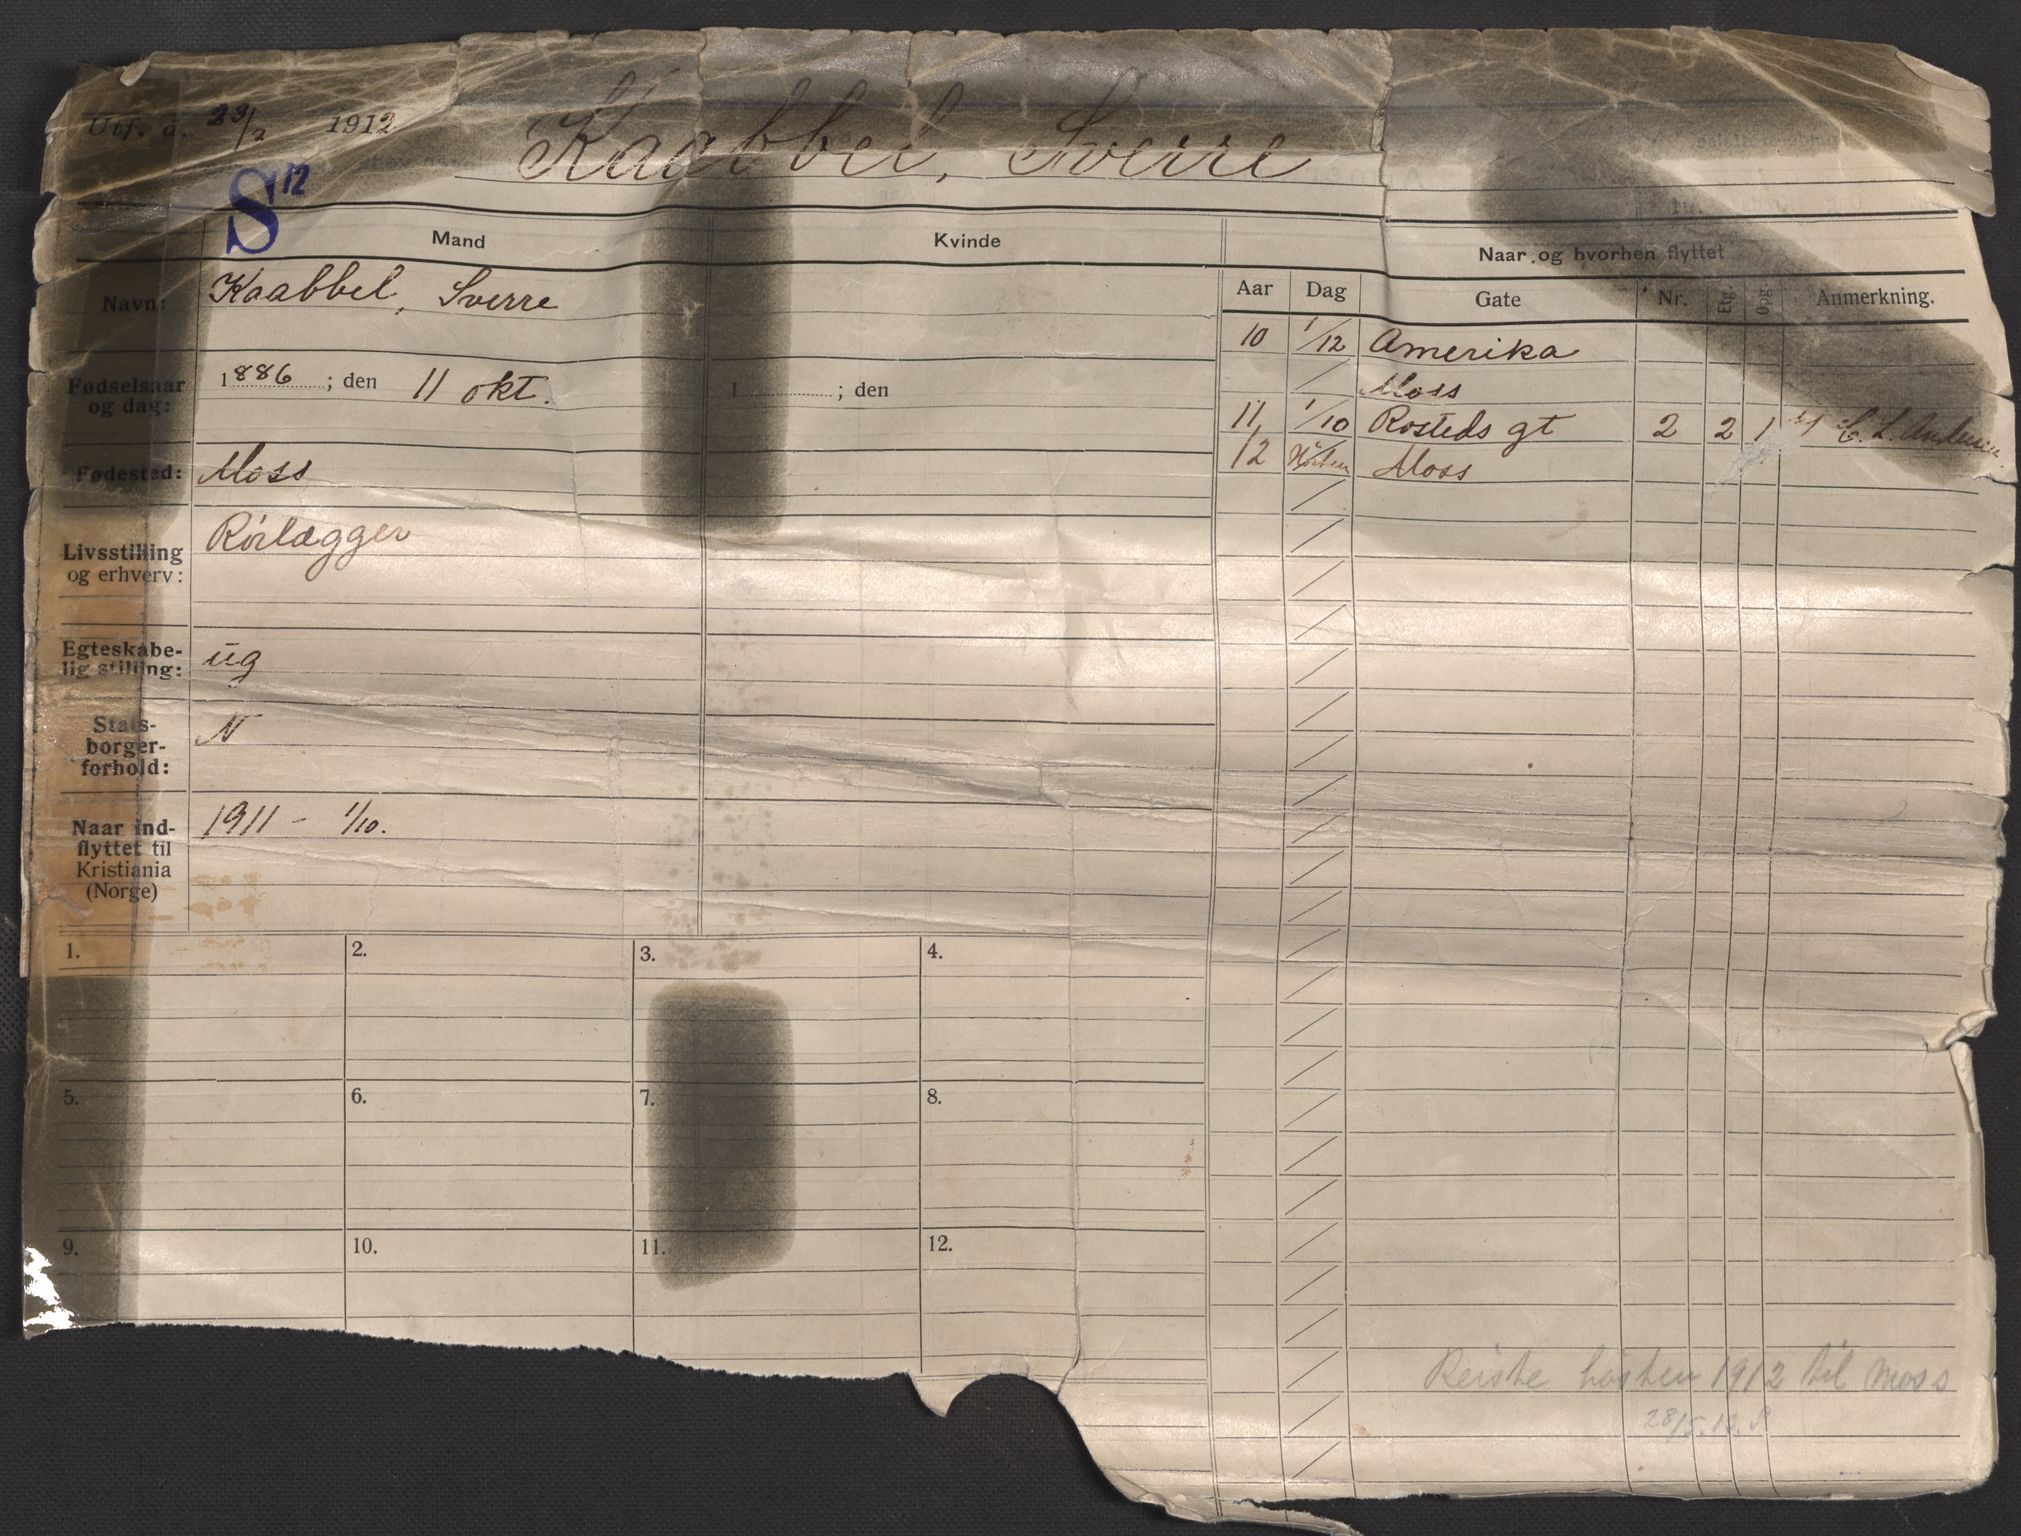 Utf. d. 23/2 1912
Kaabbel, Sverre
S 12
Mand
Kvinde
Navn: Kaabbel, Sverre
Fødselsaar og dag: 1886; den 11 okt.
1 ; den
Fødested: Moss
Livsstilling og erhverv: Rørlægger
Egteskabe-
lig stilling: ug
Stats-
borger-
forhold: N
Naar ind-
flyttet til
Kristiania
(Norge)
1911 - 1/10.
Naar og hvorhen flyttet
Aar Dag Gate Nr. Etg. Opg. Anmerkning.
10 1/12 Amerika
Moss
11 1/10 Rosteds gt 2 2 1 C. L. Andersen.
12 Høsten Moss
1. 2. 3. 4.
5. 6. 7. 8.
9. 10. 11. 12.
Reiste høsten 1912 til Moss
28/5.13.